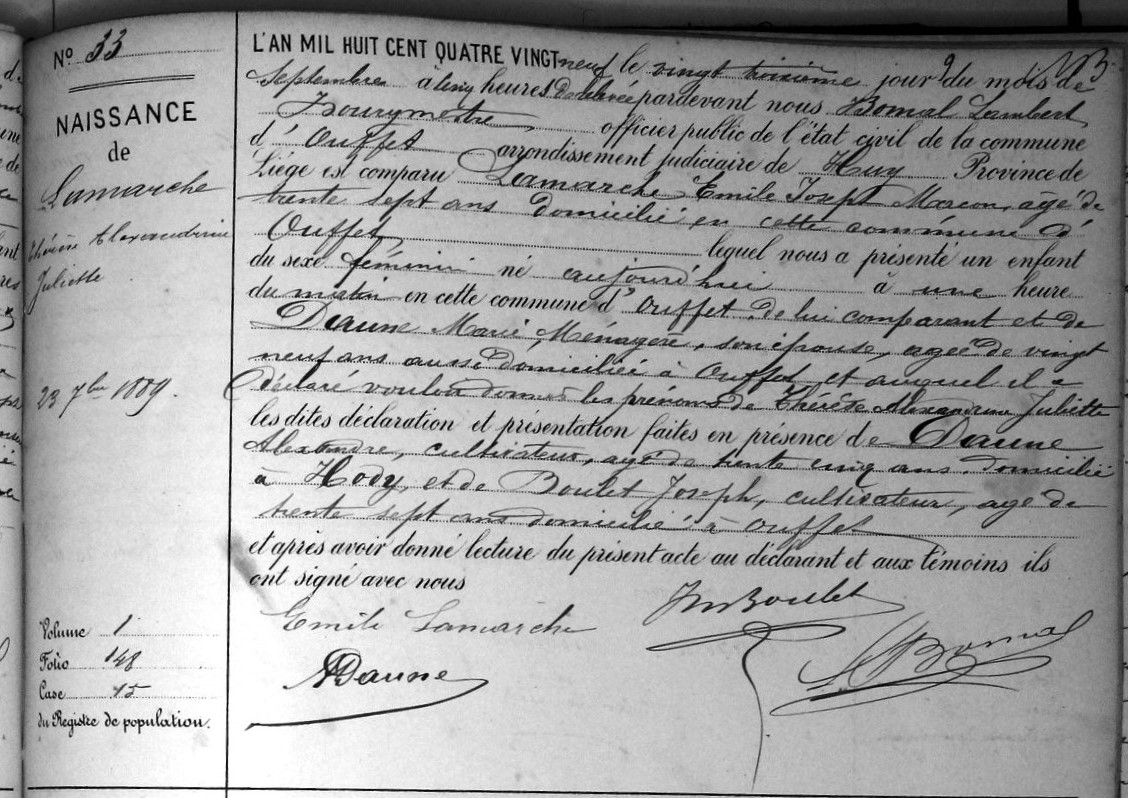 N° 33
NAISSANCE
de
Lamarche
Thérèse Alexandrine
Juliette
23 7bre 1889.
Volume 1
Folio 148
Case 15
du Registre de population.
L'AN MIL HUIT CENT QUATRE VINGT neuf le vingt troisième jour du mois de
Septembre à cinq heures pardevant nous Bomal Lambert
Bourgmestre, officier public de l'état civil de la commune
d' Ouffet arrondissement judiciaire de Huy Province de
Liége est comparu Lamarche Emile Joseph, âgé de
trente sept ans domicilié en cette commune d'
Ouffet, lequel nous a présenté un enfant
du sexe féminin né aujourd'hui à une heure
du matin en cette commune d' Ouffet de lui comparant et de
Daune Marie, Ménagère, son épouse, agée de vingt
neuf ans aussi domiciliée à Ouffet et auquel il a
déclaré vouloir donner les prenoms de Thérèse Alexandrine Juliette
les dites déclaration et présentation faites en présence de Daune
Alexandre, cultivateur, agé de trente cinq ans domicilié
à Hody, et de Boulet Joseph, cultivateur, age de
trente sept ans domicilié à Ouffet
et après avoir donné lecture du présent acte au déclarant et aux témoins ils
ont signé avec nous
Emile Lamarche
Boulet
ADaune
Bomal